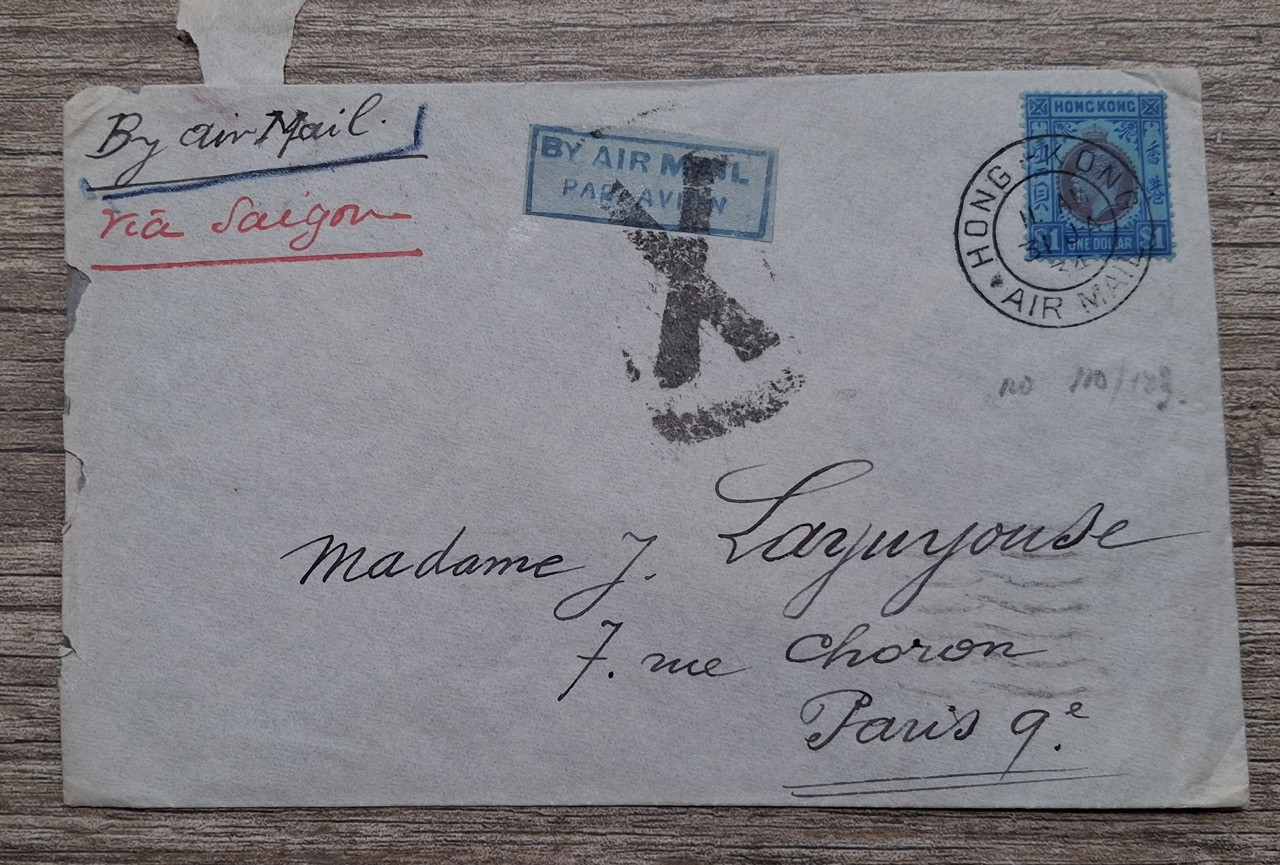 By air Mail.
via Saigon
BY AIR MAIL
PAR AVION
HONG KONG
香港
ONE DOLLAR
$1
$1
HONG-KONG
AIR MAIL
no
Madame J. Layuyouse
7. rue Choron
Paris 9.e